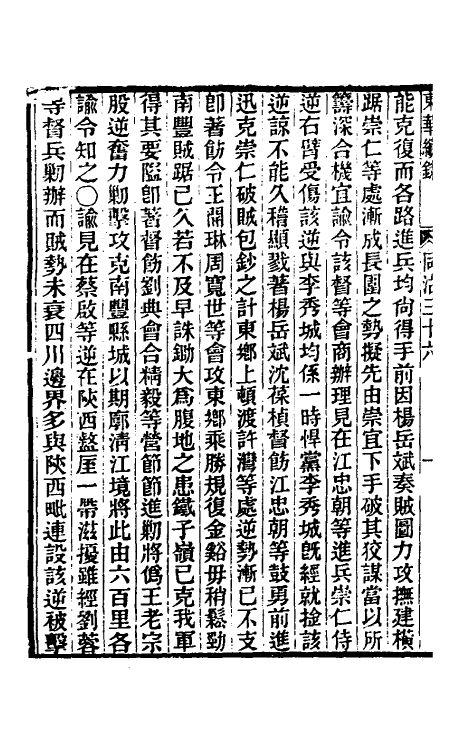 東華續錄　同治三十六　一
能克復而各路進兵均尚得手前因楊岳斌奏賊圖力攻撫建橫
踞崇仁等處漸成長圍之勢擬先由崇宜下手破其狡謀當以所
籌深合機宜諭令該督等會商辦理見在江忠朝等進兵崇仁侍
逆右臂受傷該逆與李秀城均係一時悍黨李秀城旣經就擒該
逆諒不能久稽顯戮著楊岳斌沈葆楨督飭江忠朝等鼓勇前進
迅克崇仁破賊包鈔之計東鄉上頓渡許灣等處逆勢漸已不支
卽著飭令王開琳周寬世等會攻東鄉乘勝規復金谿毋稍鬆勁
南豐賊踞已久若不及早誅鋤大爲腹地之患鐵子嶺已克我軍
得其要隘卽著督飭劉典會合精毅等營節節進剿將僞王老宗
股逆奮力剿擊攻克南豐縣城以期廓淸江境將此由六百里各
諭令知之○諭見在蔡啟等逆在陝西盩厔一帶滋擾雖經劉蓉
等督兵剿辦而賊勢未衰四川邊界多與陝西毗連設該逆被擊